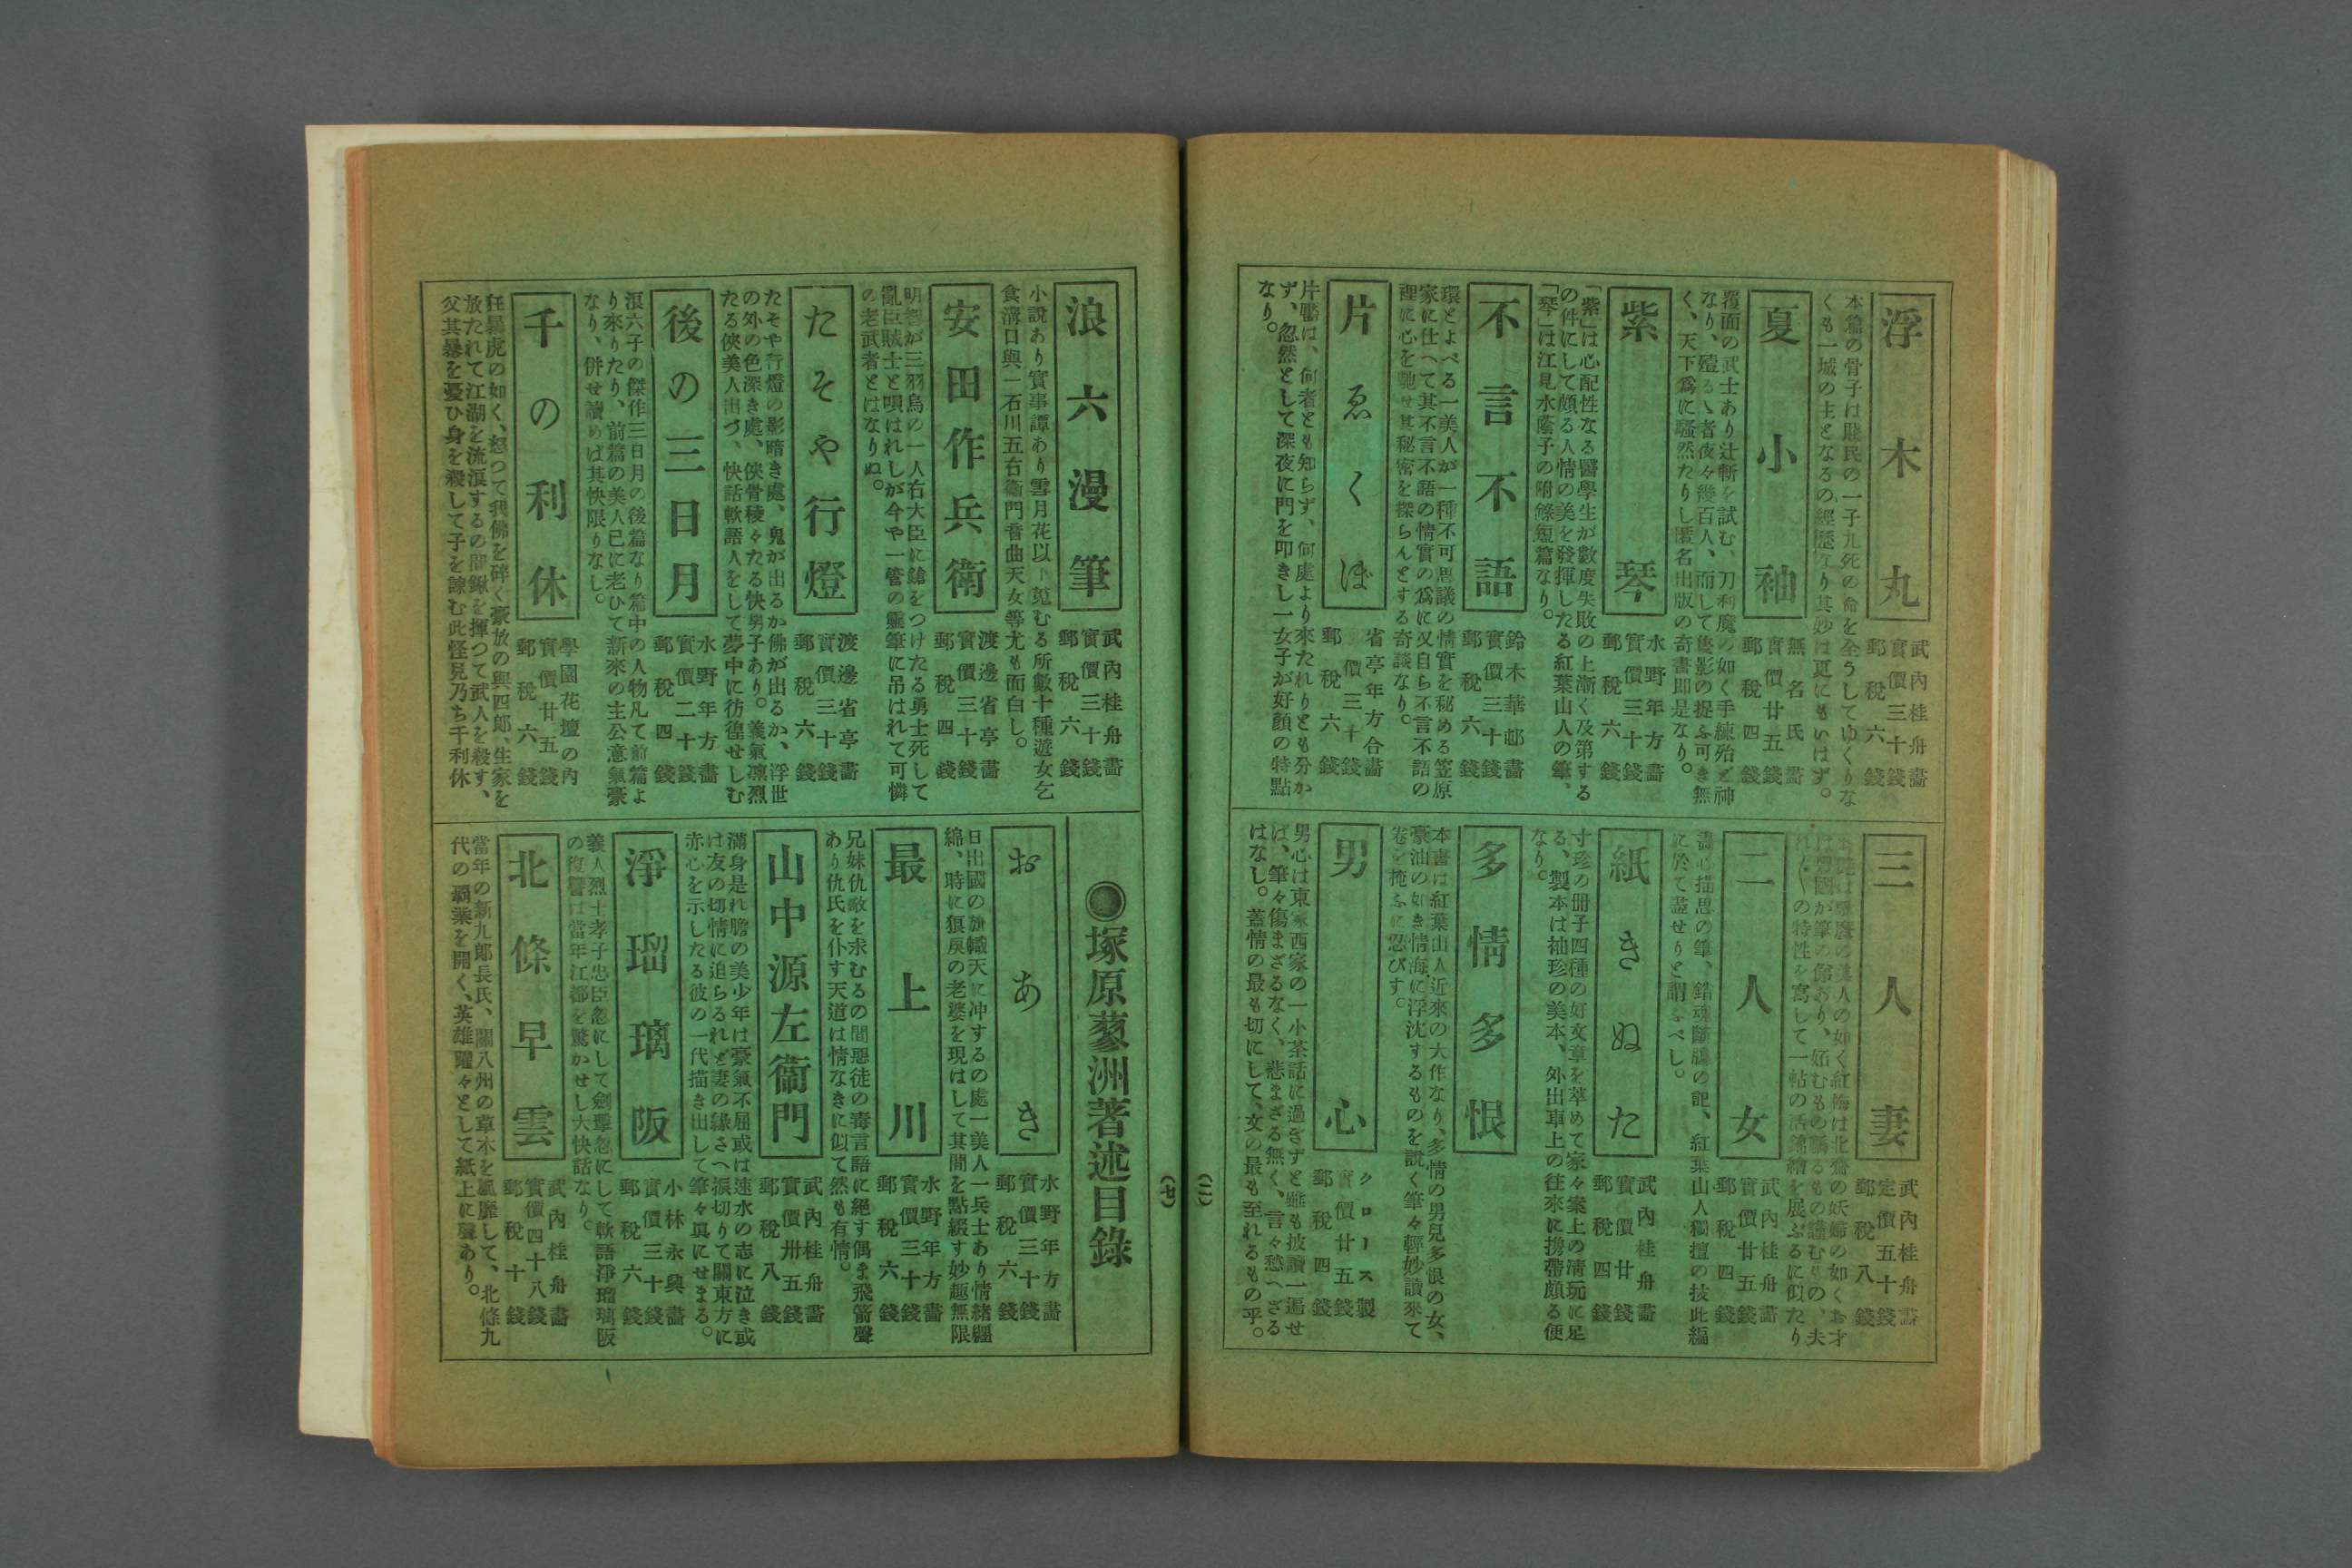 浮木丸
武內桂舟畵
實價三十錢
郵稅六錢
本篇の骨子は賤民の一子九死の命を全うしてゆくりな
くも一城の主となるの經歷なり其妙は更にもいはず。
夏小袖
無名氏畵
實價廿五錢
郵稅四錢
覆面の武士あり辻斬を試む、刀利魔の如く手練殆ど神
なり、殪るゝ者夜々幾百人、而して隻影の捉ふ可き無
く、天下爲に騷然たりし匿名出版の奇書即是なり。
紫琴
水野年方畵
實價三十錢
郵稅六錢
「紫」は心配性なる醫學生が數度失敗の上漸く及第する
の件にして頗る人情の美を發揮したる紅葉山人の筆、
「琴」は江見水蔭子の附錄短篇なり。
不言不語
鈴木華邨畵
實價三十錢
郵稅六錢
環とよべる一美人が一種不可思議の情實を秘める笠原
家に仕へて其不言不語の情實の爲に又自ら不言不語の
裡に心を馳せ其秘密を探らんとする奇談なり。
片ゑくぼ
省亭年方合畵
價三十錢
郵稅六錢
片靨は、何者とも知らず、何處より來たれりとも分か
ず、忽然として深夜に門を叩きし一女子が好顏の特點
なり。
三人妻
武內桂舟畵
定價五十錢
郵稅八錢
の美人の如く紅梅は北齋の妖婦の如くお才
が筆の俤あり、妬むもの驕るもの謹むもの、夫
れ〳〵の特性を寫して一帖の活錦繪を展ぶるに似たり
二人女
武內桂舟畵
實價廿五錢
郵稅四錢
盡心描思の筆、錯魂斷膓の記、紅葉山人獨擅の技此編
に於て盡せりと謂ふべし。
紙きぬた
武內桂舟畵
實價廿錢
郵稅四錢
寸珍の冊子四種の好文章を萃めて家々案上の淸玩に足
る、製本は袖珍の美本、外出車上の往來に携帶頗る便
なり。
多情多恨
本書は紅葉山人近來の大作なり、多情の男兒多恨の女、
豪油の如き情海に浮沈するものを說く筆々輕妙讀來て
卷を掩ふに忍びす。
男心
クロース製
實價廿五錢
郵稅四錢
男心は東家西家の一小茶話に過ぎずと雖も披讀一遍せ
ば、筆々傷まざるなく、悲まざる無く、言々愁へざる
はなし。蓋情の最も切にして、文の最も至れるもの乎。
(二)
浪六漫筆
武內桂舟畵
實價三十錢
郵稅六錢
小說あり實事譚あり雪月花以下蒐むる所數十種遊女乞
食溝口與一石川五右衞門音曲天女等尤も面白し。
安田作兵衛
渡邊省亭畵
實價三十錢
郵稅四錢
明智が三羽烏の一人右大臣に鎗をつけたる勇士死して
亂臣賊士と唄はれしが今や一管の靈筆に吊はれて可憐
の老武者とはなりぬ。
たそや行燈
渡邊省亭畵
實價三十錢
郵稅六錢
たそや行燈の影暗き處、鬼が出るか佛が出るか、浮世
の外の色深き處、俠骨稜々たる快男子あり。義氣凛烈
たる俠美人出づ、快話軟語人をして夢中に彷徨せしむ
後の三日月
水野年方畵
實價二十錢
郵稅四錢
浪六子の傑作三日月の後篇なり篇中の人物凡て前篇よ
り來りたり、前篇の美人已に老ひて新來の主公意氣豪
なり、併せ讀めば其快限りなし。
千の利休
學園花壇の內
實價廿五錢
郵稅六錢
狂暴虎の如く、怒つて我佛を碎く豪放の與四郎、生家を
放たれて江湖を流浪するの間鍬を揮つて武人を殺す、
父其暴を憂ひ身を殺して子を諫む此怪兒乃ち千利休
●塚原蓼洲著述目錄
おあき
水野年方畵
實價三十錢
郵稅六錢
日出國の旗幟天に冲するの處一美人一兵士あり情緖纏
綿、時に狼戾の老婆を現はして其間を點綴す妙趣無限
最上川
水野年方畵
實價三十錢
郵稅六錢
兄妹仇敵を求むるの間惡徒の毒言語に絕す偶ま飛箭聲
あり仇氏を仆す天道は情なきに似て然も有情。
山中源左衞門
武內桂舟畵
實價卅五錢
郵稅八錢
滿身是れ膽の美少年は豪氣不屈或は速水の志に泣き或
は友の切情に迫られど妻の緣さへ振切りて關東方に
赤心を示したる彼の一代描き出して筆々眞にせまる。
淨瑠璃阪
小林永興畵
實價三十錢
郵稅六錢
義人烈士孝子忠臣忽にして劍擊忽にして軟語淨瑠璃阪
の復讐は當年江都を驚かせし大快話なり。
北條早雲
武內桂舟畵
實價四十八錢
郵稅十錢
當年の新九郎長氏、關八州の草木を風靡して、北條九
代の覇業を開く、英雄躍々として紙上に聲あり。
(七)